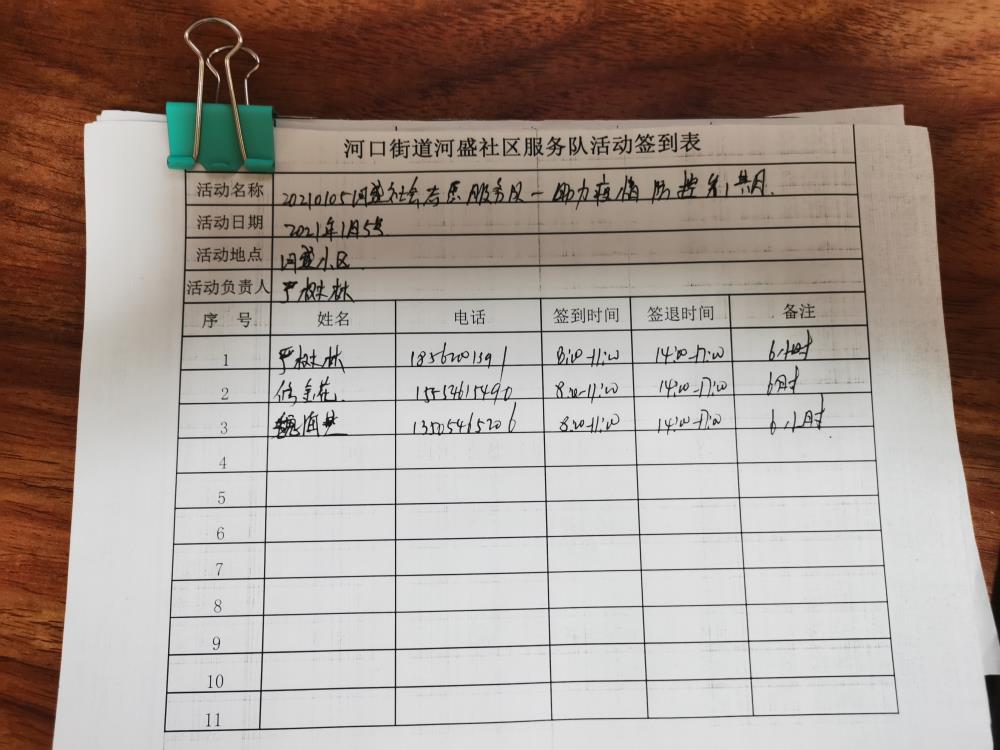 河口街道河盛社区服务队活动签到表
活动名称 20210105河盛社会志愿服务队一助力疫情防控第1共月.
活动日期 2021年1月5号
活动地点 河盛小区
活动负责人 严树林
序 号 姓名 电话 签到时间 签退时间 备注
1 严树林 18562001391 8:00-11:00 14:00-17:00 6小时
2 15554615490 8:00-11:00 14:00-17:00 6时
3 魏海 13505465206 8:00-11:00 14:00-17:00 6小时
4
5
6
7
8
9
10
11